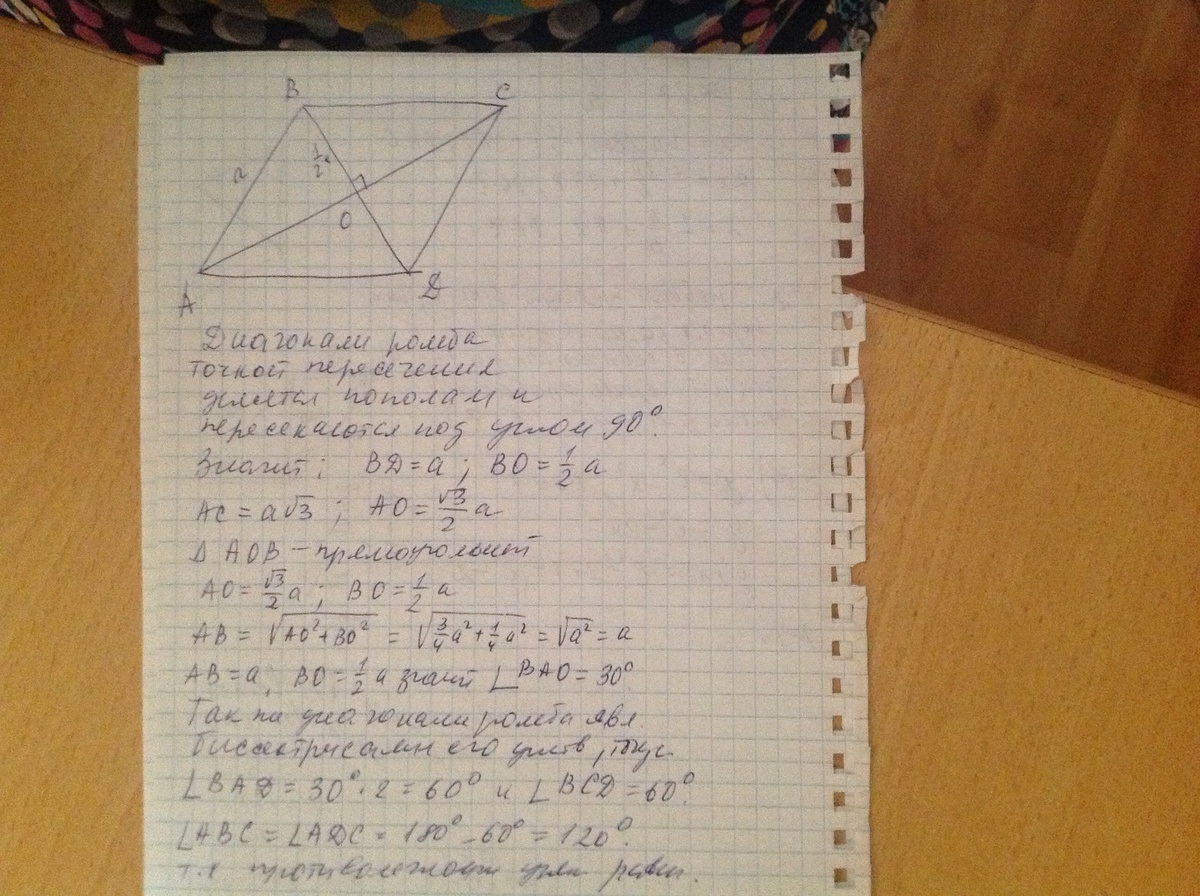 B C
a
1/2 a
O
A D
Диагонали ромба
точкой пересечения
делятся пополам и
пересекаются под углом 90°.
Значит; BD = a; BO = 1/2 a
AC = a√3; AO = √3/2 a
Δ AOB – прямоугольный
AO = √3/2 a; BO = 1/2 a
AB = √(AO² + BO²) = √(3/4 a² + 1/4 a²) = √a² = a
AB = a; BO = 1/2 a значит ∠BAO = 30°.
Так же диагонали ромба явл.
биссектрисами его углов,
∠BAD = 30° · 2 = 60° и ∠BCD = 60°.
∠ABC = ∠ADC = 180° – 60° = 120°.
т.к противолежащие углы равны.